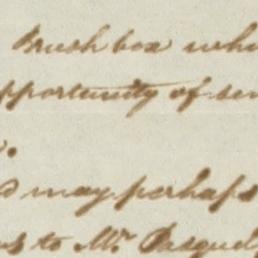 Brush box whi
pportunity of sen
.
d may perhaps
us to Mr. Pasquel